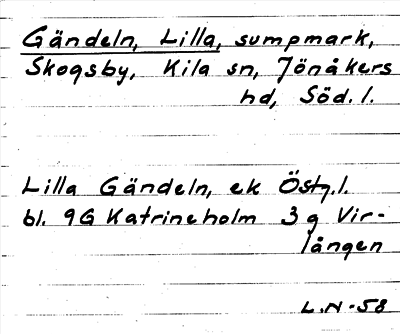 Gändeln, Lilla, sumpmark,
Skogsby, Kila sn, Jönåkers
hd, Söd. l.
Lilla Gändeln, ek Östg. l.
bl. 9G Katrineholm 3g Vir-
ången
L.N-58